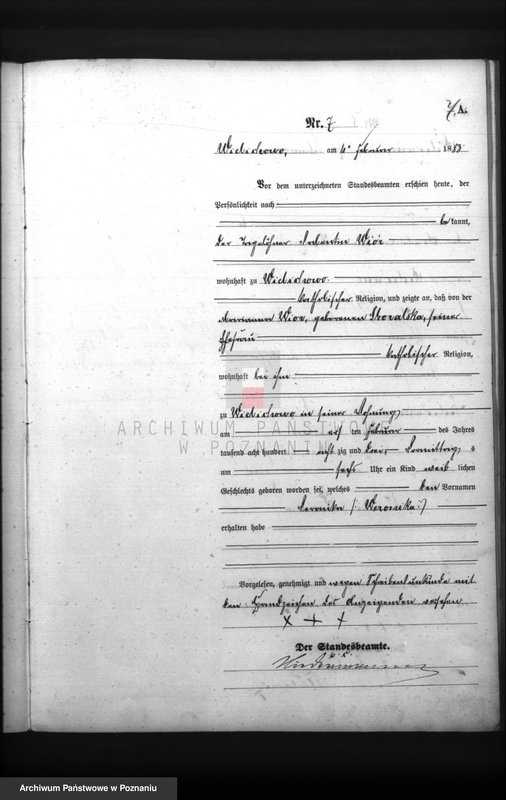 7 A.
Nr. 7
am 4ten Februar 1883.
Vor dem unterzeichneten Standesbeamten erschien heute, der
Persönlichkeit nach
be kannt,
der Tagelöhner Valentin Wiór
wohnhaft zu
katholischer Religion, und zeigte an, daß von der
Marianna Wior, geborenen seiner
Ehefrau
katholischer Religion,
wohnhaft bei ihm
zu in seiner Wohnung
am ten Februar des Jahres
tausend acht hundert acht zig und drei, Vormittags
um sechs Uhr ein Kind weib lichen
Geschlechts geboren worden sei, welches den Vornamen
Veronika (: Weronika :)
erhalten habe
Vorgelesen, genehmigt und wegen Schreibensunkunde mit
den Handzeichen des Anzeigenden versehen
× + ×
Der Standesbeamte.
ARCHIWUM PAŃSTWOWE
W POZNANIU
Archiwum Państwowe w Poznaniu